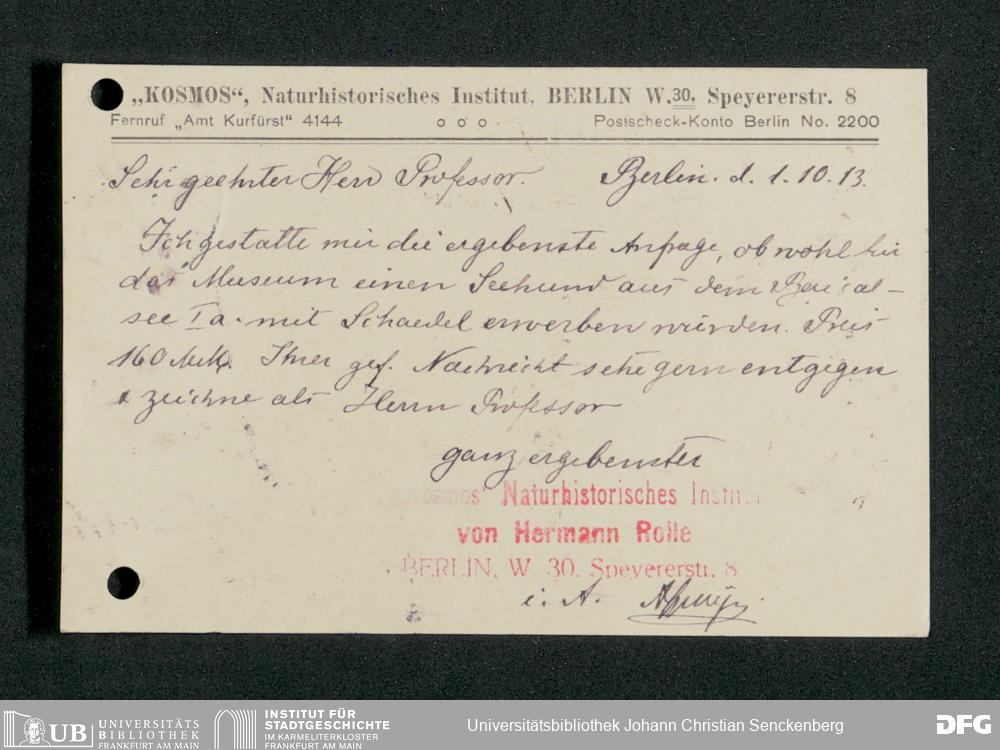 „KOSMOS“, Naturhistorisches Institut, BERLIN W.30, Speyererstr. 8
Fernruf „Amt Kurfürst“ 4144 o o o Postscheck-Konto Berlin No. 2200
Sehr geehrter Herr Professor. Berlin. d. 1. 10. 13.
Ich gestatte mir die ergebenste Anfrage, ob wohl für
das Museum einen Seehund aus dem Baical-
see Ia. mit Schaedel erwerben würden. Preis
160 Mk. Ihrer gef. Nachricht sehe gern entgegen
& zeichne als Herrn Professor
ganz ergebenster
„Kosmos“ Naturhistorisches Institut
von Hermann Rolle
BERLIN, W. 30, Speyererstr. 8
i. A.
UB UNIVERSITÄTS
BIBLIOTHEK
FRANKFURT AM MAIN
INSTITUT FÜR
STADTGESCHICHTE
IM KARMELITERKLOSTER
FRANKFURT AM MAIN
Universitätsbibliothek Johann Christian Senckenberg
DFG